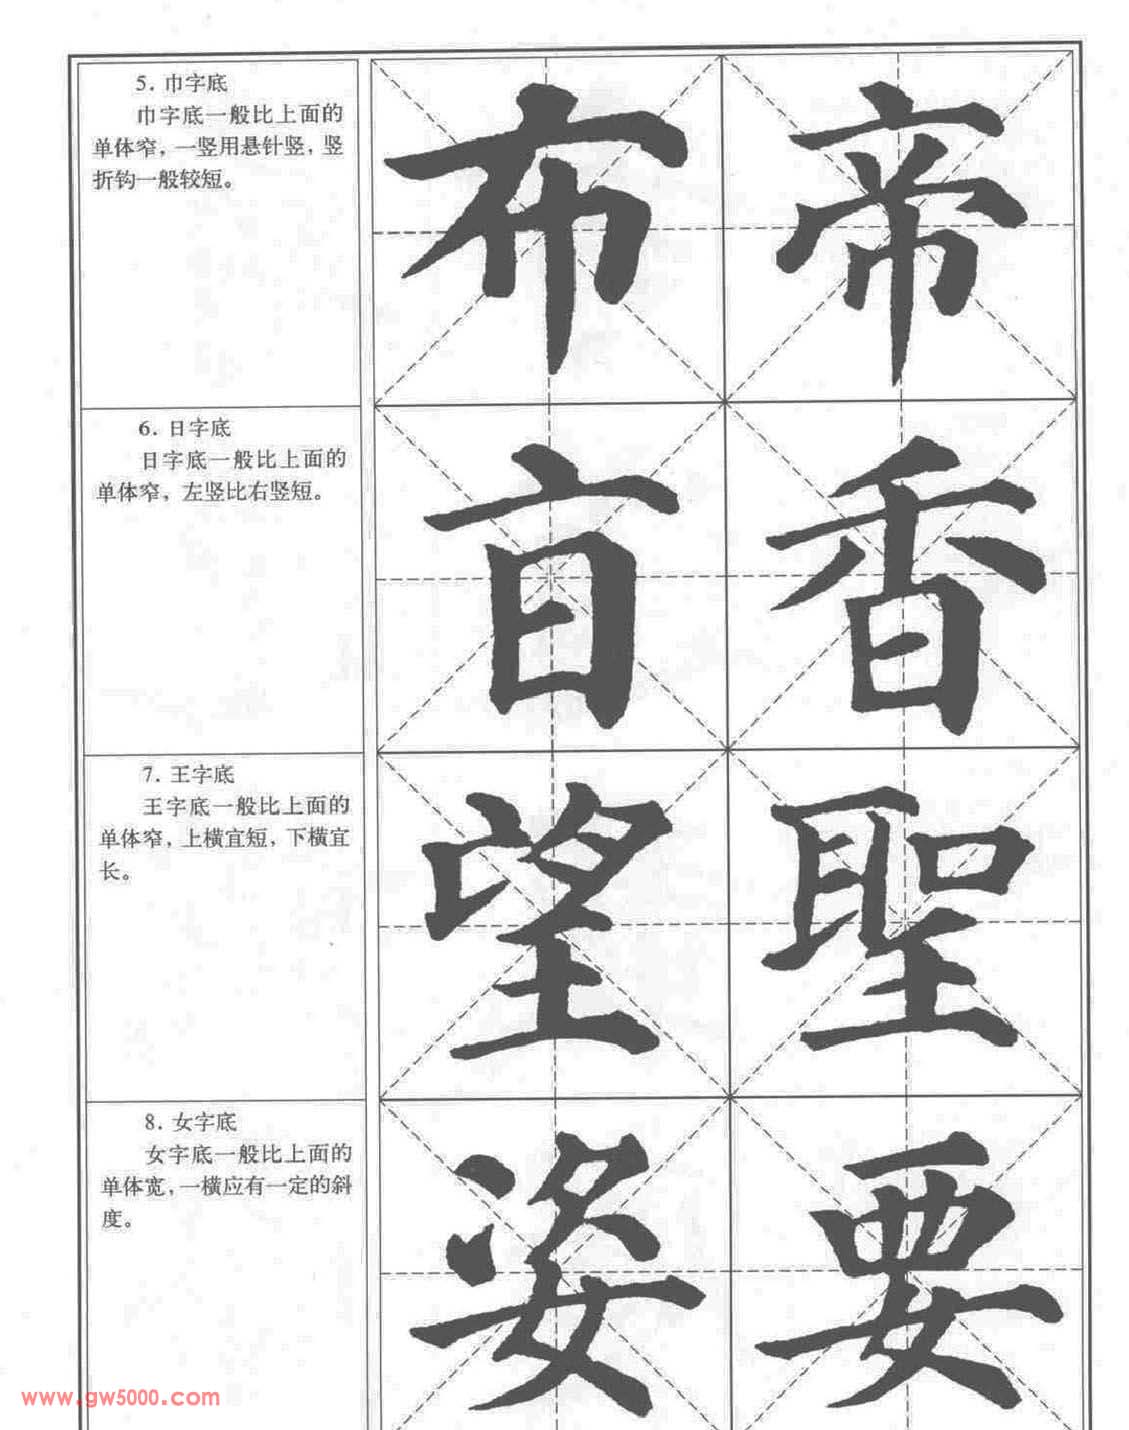 5. 巾字底
巾字底一般比上面的
单体窄，一竖用悬针竖，竖
折钩一般较短。
布 帝
6. 日字底
日字底一般比上面的
单体窄，左竖比右竖短。
香
7. 王字底
王字底一般比上面的
单体窄，上横宜短，下横宜
长。
望 聖
8. 女字底
女字底一般比上面的
单体宽，一横应有一定的斜
度。
姿 要
www.gw5000.com